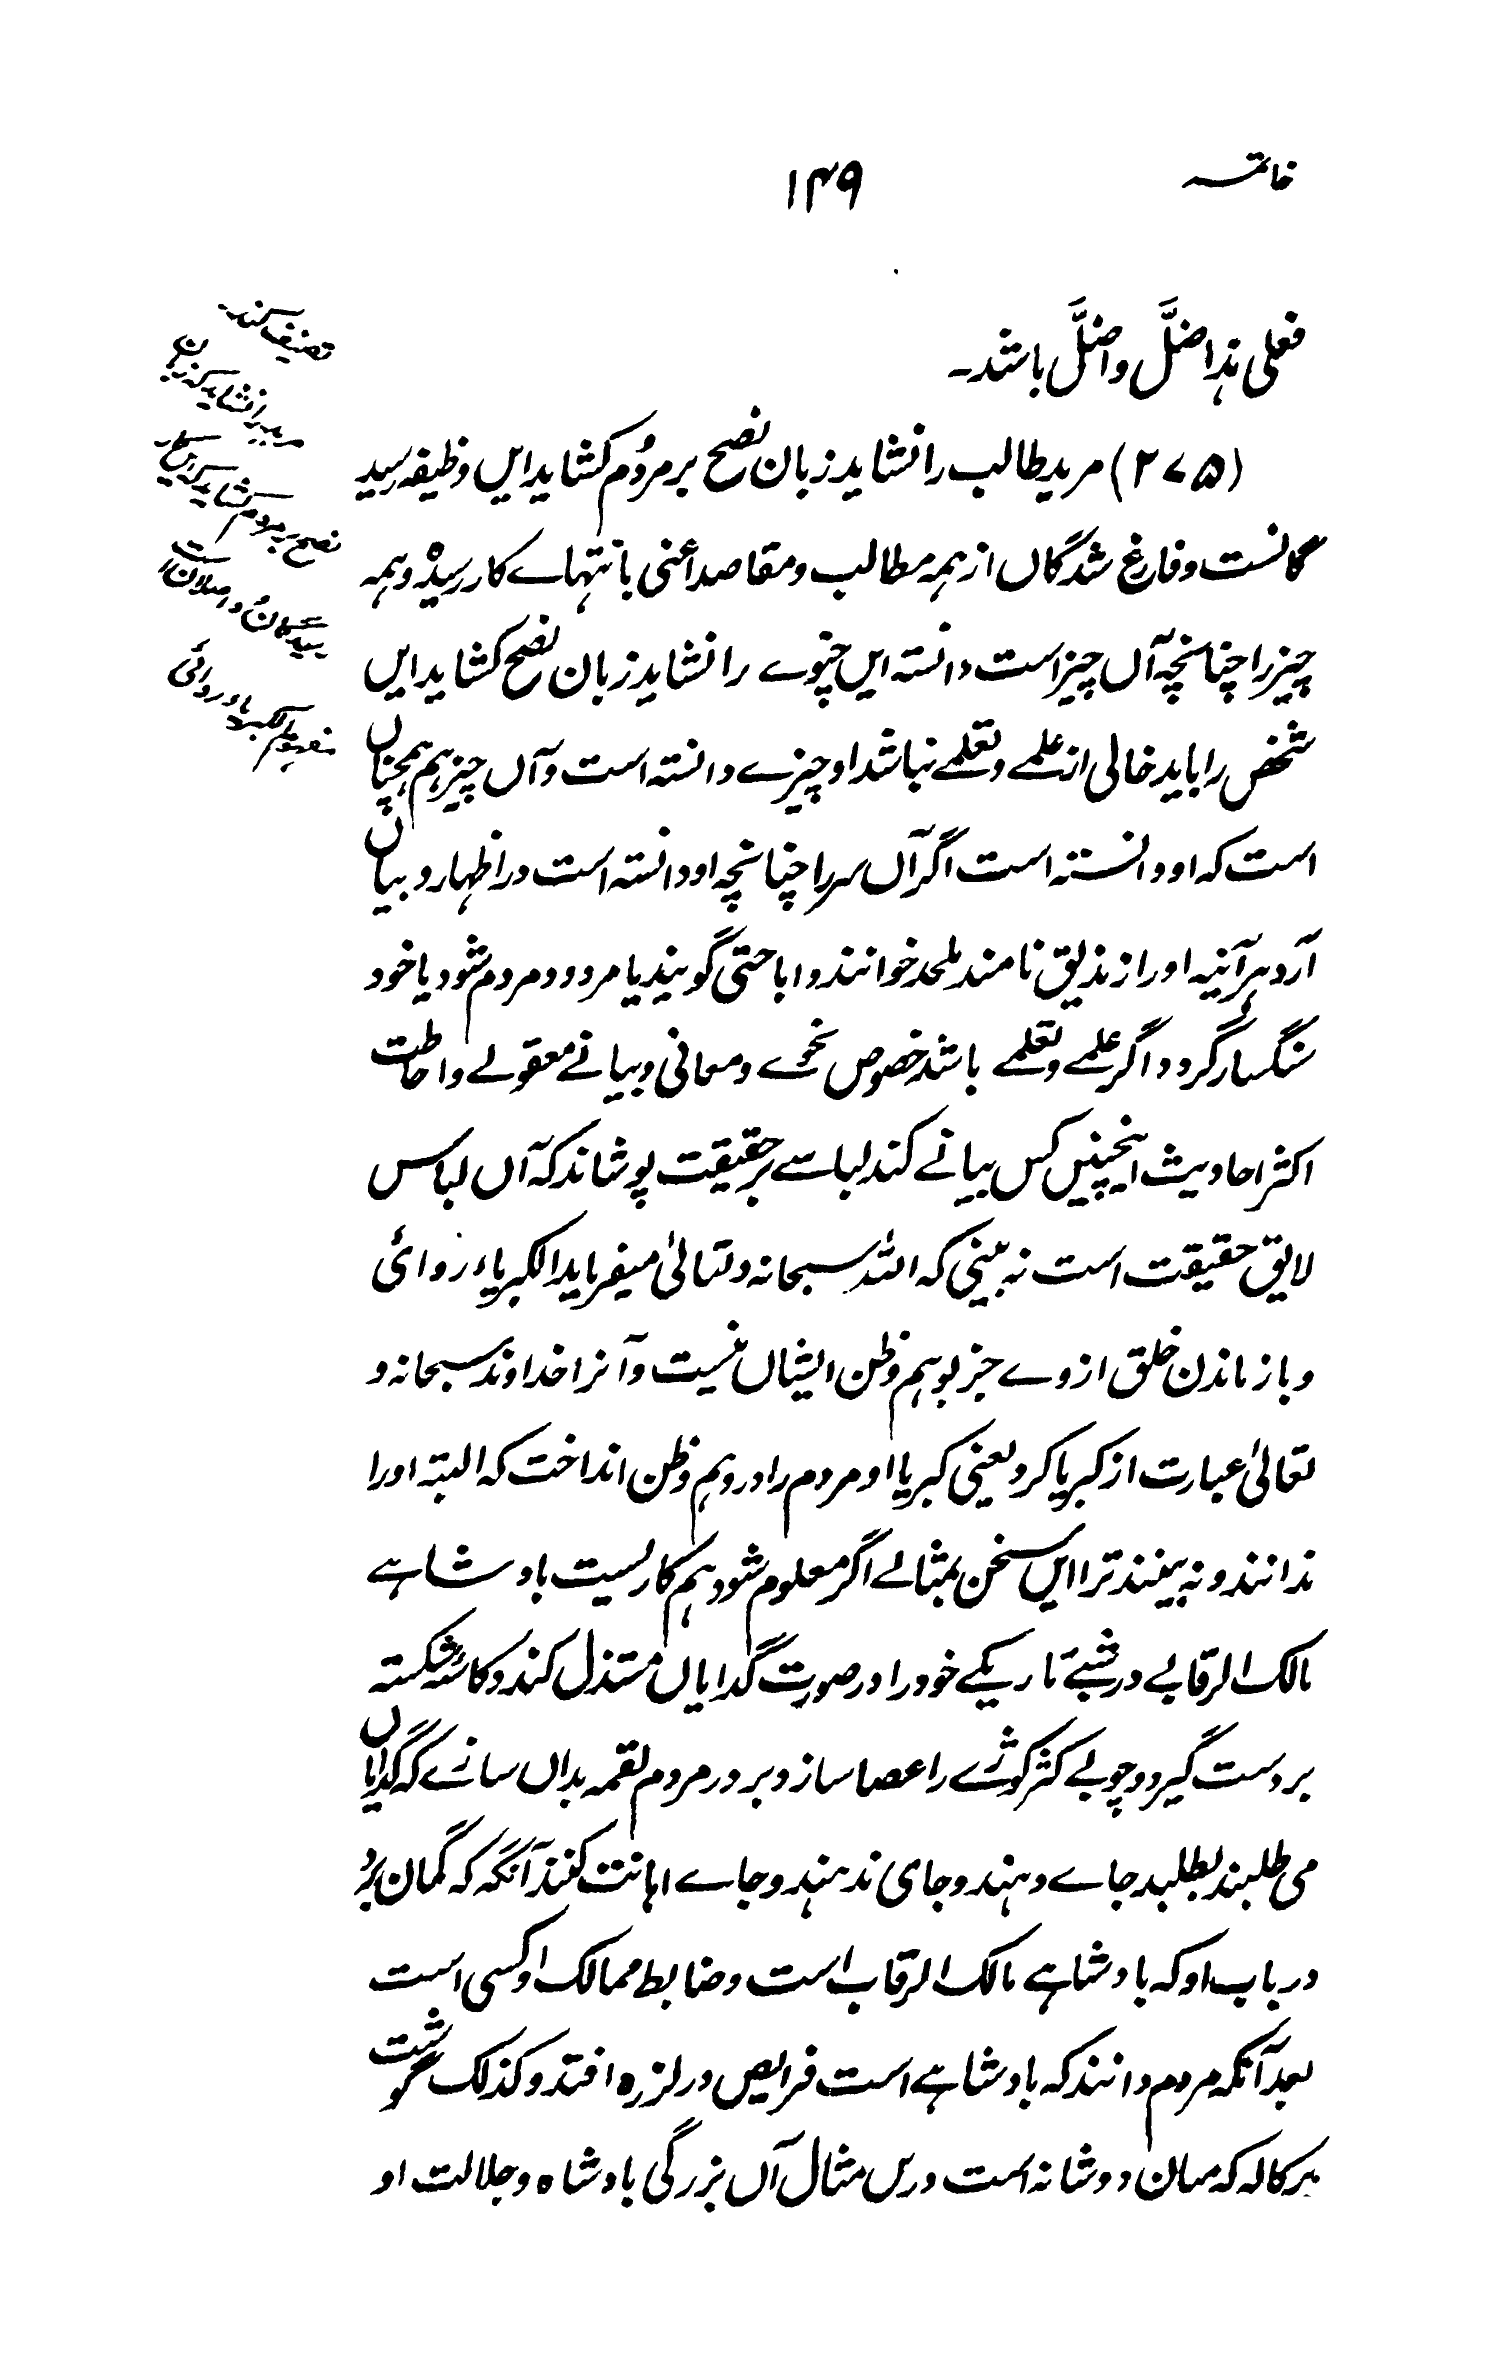 خاتمہ
۱۴۹
فعلی ہذا ضلَّ واضلَّ باشد۔
(۲۷۵) مرید طالب را نشاید زبان نصح بر مردُم کشاید ایں وظیفہ رسید
گانست و فارغ شدگاں از ہمہ مطالب و مقاصد اعنی بانتہاے کار رسیدہ وہمہ
چیز را چنانچہ آں چیز است دانستہ ایں چنوے را نشاید زبان نصح کشاید ایں
شخص را باید خالی از علمے و تعلمے نباشد او چیزے دانستہ است و آں چیز ہم ہمچناں
است کہ او دانستہ است اگر آں سر را چنانچہ او دانستہ است در اظہار و بیاں
آرد ہر آئینہ او را زندیق نامند ملحد خوانند و اباحتی گویند یا مردود مردم شود یا خود
سنگسار گردد اگر علمے و تعلمے باشد خصوص نحوے و معانی و بیانے معقولے و احاطت
اکثر احادیث اینچنیں کس بیانے کند لباسے بر حقیقت پوشاند کہ آں لباس
لایق حقیقت است نہ بینی کہ اللہ سبحانہ و تعالیٰ میفرماید الکبریاء ردائی
و باز ماندن خلق از وے جز بوہم و ظن ایشاں نیست و آنرا خداوند سبحانہ و
تعالیٰ عبارت از کبریا کرد یعنی کبریا او مردم را در وہم و ظن انداخت کہ البتہ او را
ندانند و نہ بینند ترا ایں سخن بمثالے اگر معلوم شود ہم کاریست بادشاہے
مالک الرقابے در شبے تاریکے خود را در صورت گدایاں مستذل کند و کاسۂ شکستہ
بر دست گیرد و چوبے کژ کوژے را عصا سازد و بر در مردم لقمہ بداں سازے کہ گدایاں
می طلبند بطلبد جاے دہند و جای ندہند و جاے اہانت کنند آنگہ کہ گمان برد
در باب او کہ بادشاہے مالک الرقاب است و ضابط ممالک او کسی است
بعد آنکہ مردم دانند کہ بادشاہے است فرایص در لرزہ افتد و کذلک گوشت
پرکالہ کہ میان دو شانہ است دریں مثال آں بزرگی بادشاہ و جلالت او
تصنیف کند۔
مرید را نشاید کہ زبان
نصح بر مردم کشاید کہ ایں کار
رسیدگان و واصلان است
مفہوم الکبریاء ردائی